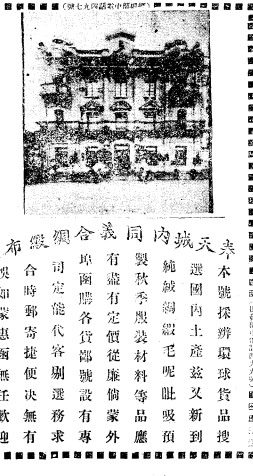 奉天城內同義合綢緞布
本號採辦環球貨品搜
選國內土產茲又新到
純絨綢緞毛呢呲吸預
製秋季服裝材料等品應
有盡有定價從廉倘蒙外
埠函購各貨鄙號設有專
司定能代客剔選務求
合時郵寄捷便決無有
誤如蒙惠函無任歡迎